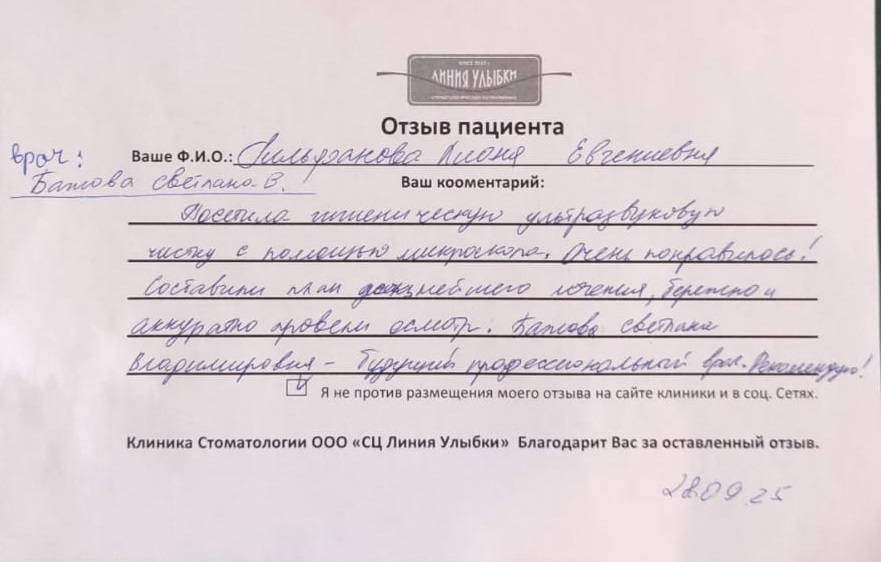 SINCE 2010 г.
ЛИНИЯ УЛЫБКИ
Отзыв пациента
врач:
Ваше Ф.И.О.: Евгениевна
Бажова Светлана В.
Ваш кооментарий:
Посетила гигиеническую ультразвуковую
чистку с помощью микроскопа. Очень понравилось!
Составили план дальнейшего лечения, бережно и
аккуратно провели осмотр. Бажова Светлана
Владимировна - будущий профессиональный врач. Рекомендую!
Я не против размещения моего отзыва на сайте клиники и в соц. Сетях.
Клиника Стоматологии ООО «СЦ Линия Улыбки» Благодарит Вас за оставленный отзыв.
28.09.25